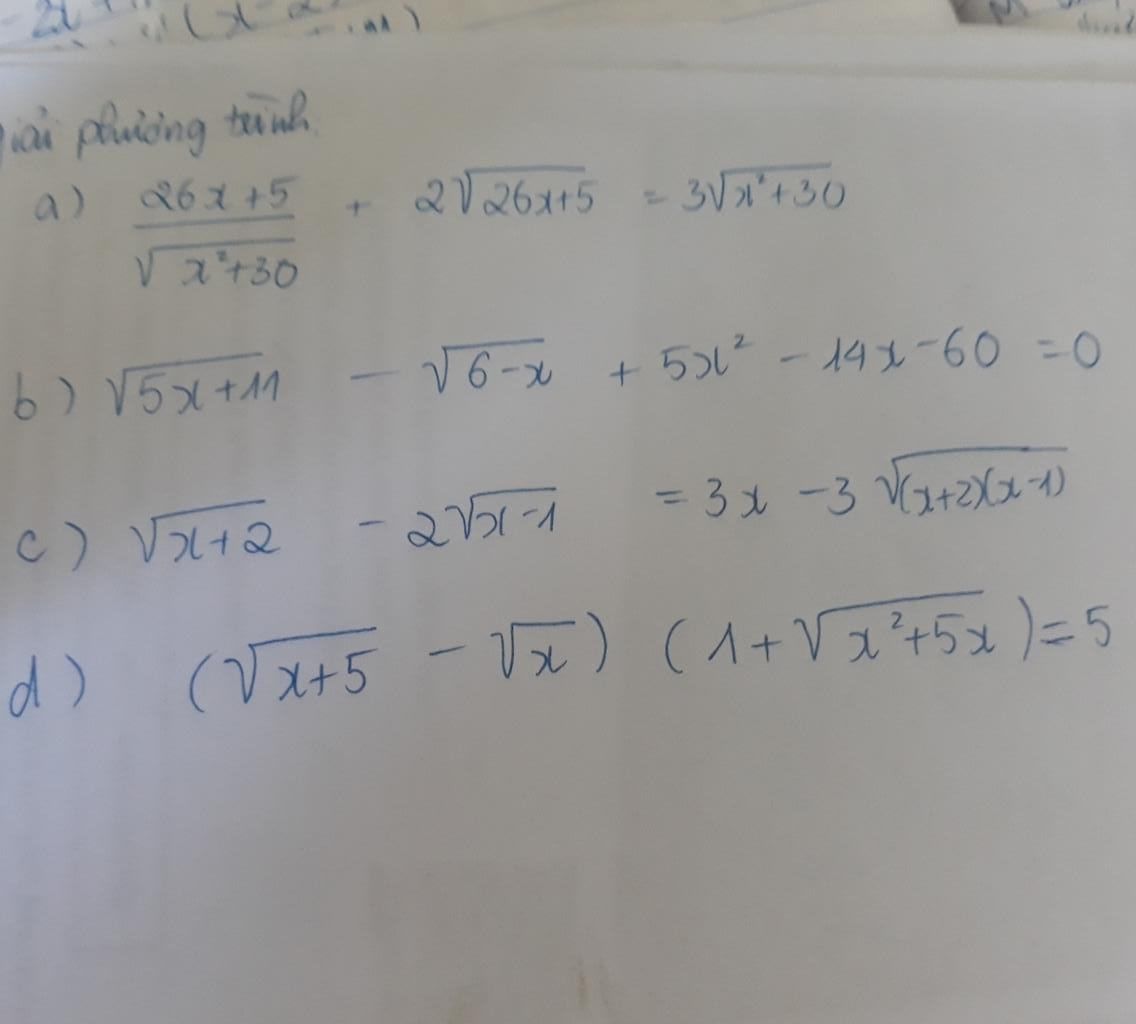 giải phương trình
a) \frac{26x+5}{\sqrt{x^2+30}} + 2\sqrt{26x+5} = 3\sqrt{x^2+30}
b) \sqrt{5x+11} - \sqrt{6-x} + 5x^2 - 14x - 60 = 0
c) \sqrt{x+2} - 2\sqrt{x-1} = 3x - 3\sqrt{(x+2)(x-1)}
d) (\sqrt{x+5} - \sqrt{x}) (1+\sqrt{x^2+5x}) = 5